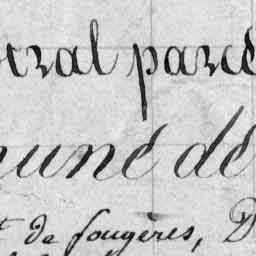 tral parcé
mune de
t de fougères, D